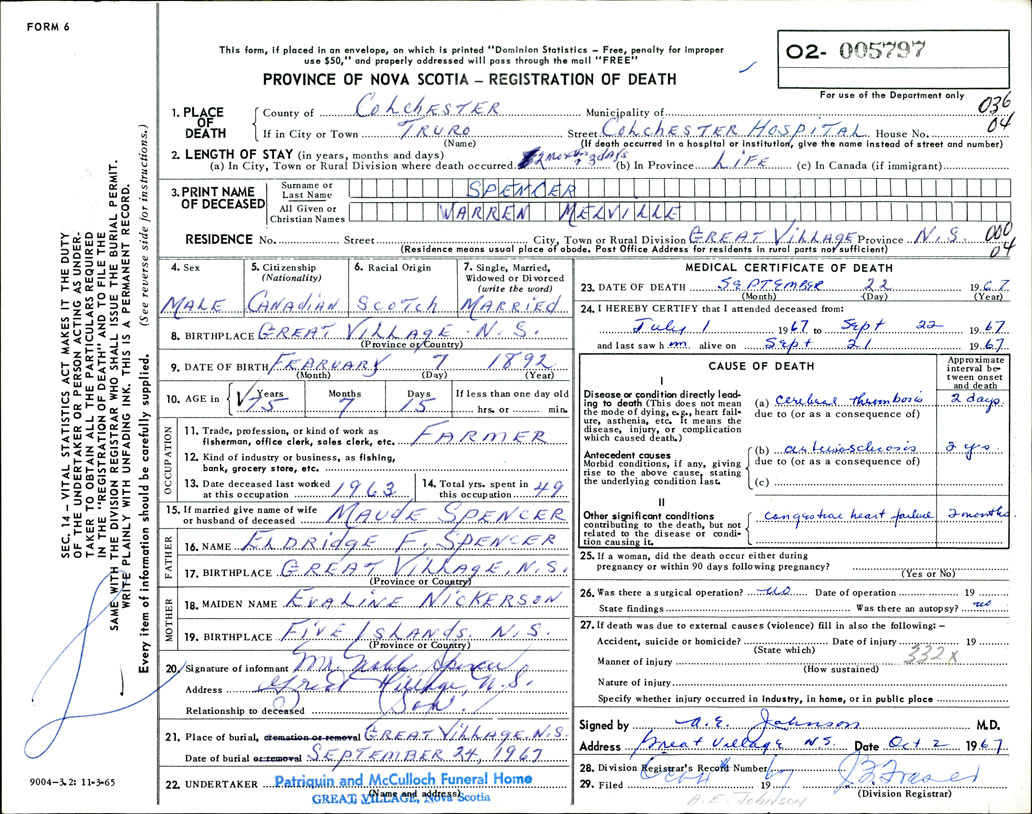 FORM 6
This form, if placed in an envelope, on which is printed "Dominion Statistics – Free, penalty for improper
use $50," and properly addressed will pass through the mail "FREE"
PROVINCE OF NOVA SCOTIA – REGISTRATION OF DEATH
02- 005797
For use of the Department only
036
04
1. PLACE OF DEATH
County of COLCHESTER Municipality of
If in City or Town TRURO Street COLCHESTER HOSPITAL House No.
(Name) (If death occurred in a hospital or institution, give the name instead of street and number)
2. LENGTH OF STAY (in years, months and days)
(a) In City, Town or Rural Division where death occurred 2 months 3 days (b) In Province LIFE (c) In Canada (if immigrant)
3. PRINT NAME OF DECEASED
Surname or Last Name SPENCER
All Given or Christian Names WARREN MELVILLE
RESIDENCE No. Street City, Town or Rural Division GREAT VILLAGE Province N.S. 000
04
(Residence means usual place of abode. Post Office Address for residents in rural parts not sufficient)
4. Sex MALE
5. Citizenship (Nationality) CANADIAN
6. Racial Origin SCOTCH
7. Single, Married, Widowed or Divorced (write the word) MARRIED
8. BIRTHPLACE GREAT VILLAGE N.S.
(Province or Country)
9. DATE OF BIRTH FEBRUARY 7 1892
(Month) (Day) (Year)
10. AGE in Years 75 Months 7 Days 15 If less than one day old
hrs. or min.
OCCUPATION
11. Trade, profession, or kind of work as
fisherman, office clerk, sales clerk, etc. FARMER
12. Kind of industry or business, as fishing,
bank, grocery store, etc.
13. Date deceased last worked
at this occupation 1963
14. Total yrs. spent in
this occupation 49
15. If married give name of wife
or husband of deceased MAUDE SPENCER
FATHER
16. NAME ELDRIDGE F. SPENCER
17. BIRTHPLACE GREAT VILLAGE, N.S.
(Province or Country)
MOTHER
18. MAIDEN NAME EVALINE NICKERSON
19. BIRTHPLACE FIVE ISLANDS. N.S.
(Province or Country)
20. Signature of informant Mr. Spencer
Address Great Village, N.S.
Relationship to deceased Son.
21. Place of burial, cremation or removal GREAT VILLAGE. N.S.
Date of burial or removal SEPTEMBER 24, 1967
22. UNDERTAKER Patriquin and McCulloch Funeral Home
(Name and address)
GREAT VILLAGE, Nova Scotia
MEDICAL CERTIFICATE OF DEATH
23. DATE OF DEATH SEPTEMBER 22 1967
(Month) (Day) (Year)
24. I HEREBY CERTIFY that I attended deceased from:
July 1 1967 to Sept 22 1967
and last saw him alive on Sept 21 1967
CAUSE OF DEATH
Approximate interval between onset and death
I
Disease or condition directly leading to death (This does not mean the mode of dying, e.g., heart failure, asthenia, etc. It means the disease, injury, or complication which caused death.)
(a) cerebral thrombosis 2 days
due to (or as a consequence of)
Antecedent causes
Morbid conditions, if any, giving rise to the above cause, stating the underlying condition last.
(b) arteriosclerosis 2 yrs
due to (or as a consequence of)
(c)
II
Other significant conditions
contributing to the death, but not related to the disease or condition causing it.
congestive heart failure 2 months
25. If a woman, did the death occur either during
pregnancy or within 90 days following pregnancy?
(Yes or No)
26. Was there a surgical operation? no Date of operation 19
State findings Was there an autopsy? no
27. If death was due to external causes (violence) fill in also the following: –
Accident, suicide or homicide? Date of injury 19
(State which)
332X
Manner of injury
(How sustained)
Nature of injury
Specify whether injury occurred in industry, in home, or in public place
Signed by A.E. Johnson M.D.
Address Great Village N.S. Date Oct 2 1967
28. Division Registrar's Record Number
29. Filed 1967
(Division Registrar)
A.E. Johnson
SEC. 14 – VITAL STATISTICS ACT MAKES IT THE DUTY
OF THE UNDERTAKER OR PERSON ACTING AS UNDER-
TAKER TO OBTAIN ALL THE PARTICULARS REQUIRED
IN THE "REGISTRATION OF DEATH" AND TO FILE THE
SAME WITH THE DIVISION REGISTRAR WHO SHALL ISSUE THE BURIAL PERMIT.
WRITE PLAINLY WITH UNFADING INK. THIS IS A PERMANENT RECORD.
Every item of information should be carefully supplied. (See reverse side for instructions.)
9004-3.2: 11-3-65